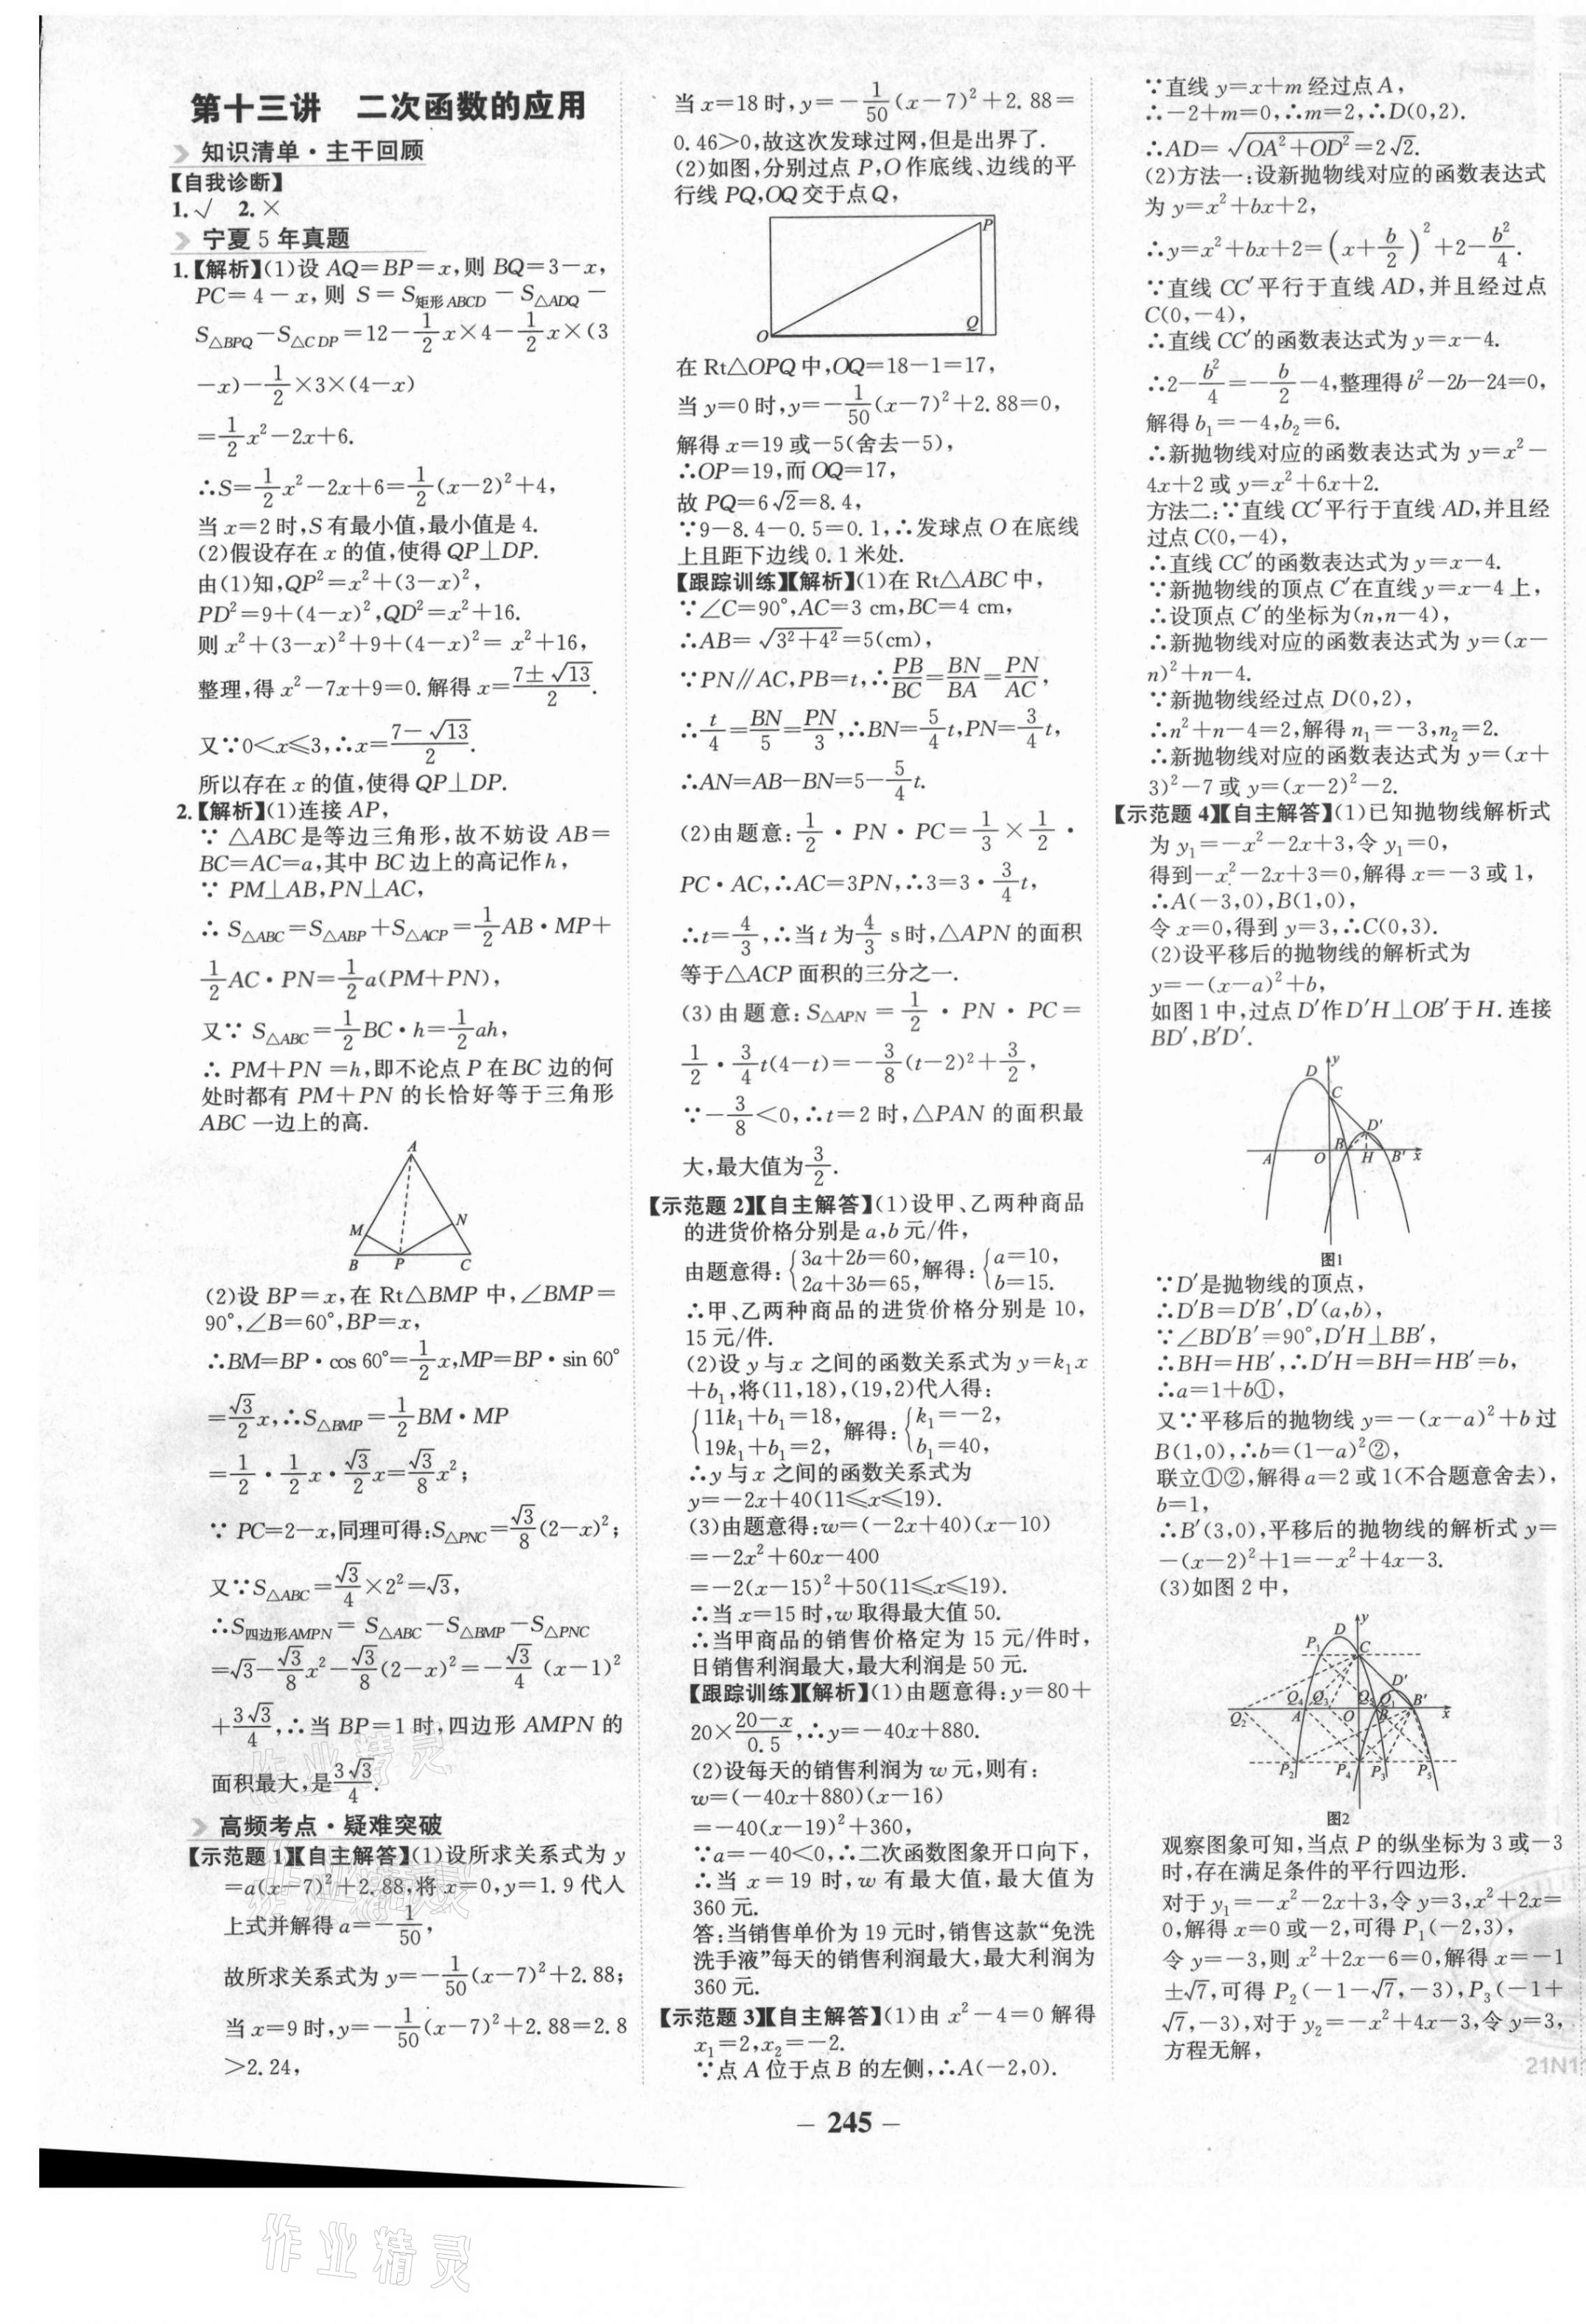 第十三讲 二次函数的应用
知识清单·主干回顾
【自我诊断】
1.√ 2.×
宁夏5年真题
1.【解析】(1)设 AQ=BP=x,则 BQ=3-x,
PC=4-x,则 S=S矩形ABCD-S△ADQ-
S△BPQ-S△CDP=12-1/2x×4-1/2x×(3
-x)-1/2×3×(4-x)
=1/2x²-2x+6.
∴S=1/2x²-2x+6=1/2(x-2)²+4,
当x=2时,S有最小值,最小值是4.
(2)假设存在x的值,使得QP⊥DP.
由(1)知,QP²=x²+(3-x)²,
PD²=9+(4-x)²,QD²=x²+16.
则x²+(3-x)²+9+(4-x)²= x²+16,
整理,得x²-7x+9=0.解得x=(7±√13)/2.
又∵0<x≤3,∴x=(7-√13)/2.
所以存在x的值,使得QP⊥DP.
2.【解析】(1)连接AP,
∵ △ABC是等边三角形,故不妨设AB=
BC=AC=a,其中BC边上的高记作h,
∵ PM⊥AB,PN⊥AC,
∴ S△ABC=S△ABP+S△ACP=1/2AB·MP+
1/2AC·PN=1/2a(PM+PN),
又∵ S△ABC=1/2BC·h=1/2ah,
∴ PM+PN=h,即不论点P在BC边的何
处时都有PM+PN的长恰好等于三角形
ABC一边上的高.
A
M
N
B P C
(2)设BP=x,在Rt△BMP中,∠BMP=
90°,∠B=60°,BP=x,
∴BM=BP·cos 60°=1/2x,MP=BP·sin 60°
=√3/2x,∴S△BMP=1/2BM·MP
=1/2·1/2x·√3/2x=√3/8x²;
∵ PC=2-x,同理可得:S△PNC=√3/8(2-x)²;
又∵S△ABC=√3/4×2²=√3,
∴S四边形AMPN= S△ABC-S△BMP-S△PNC
=√3-√3/8x²-√3/8(2-x)²=-√3/4(x-1)²
+3√3/4,∴当BP=1时,四边形AMPN的
面积最大,是3√3/4.
高频考点·疑难突破
【示范题1】【自主解答】(1)设所求关系式为y
=a(x-7)²+2.88,将x=0,y=1.9代入
上式并解得a=-1/50,
故所求关系式为y=-1/50(x-7)²+2.88;
当x=9时,y=-1/50(x-7)²+2.88=2.8
>2.24,
当x=18时,y=-1/50(x-7)²+2.88=
0.46>0,故这次发球过网,但是出界了.
(2)如图,分别过点P,O作底线、边线的平
行线PQ,OQ交于点Q,
P
O Q
在Rt△OPQ中,OQ=18-1=17,
当y=0时,y=-1/50(x-7)²+2.88=0,
解得x=19或-5(舍去-5),
∴OP=19,而OQ=17,
故PQ=6√2=8.4,
∵9-8.4-0.5=0.1,∴发球点O在底线
上且距下边线0.1米处.
【跟踪训练】【解析】(1)在Rt△ABC中,
∵∠C=90°,AC=3 cm,BC=4 cm,
∴AB=√(3²+4²)=5(cm),
∵PN∥AC,PB=t,∴PB/BC=BN/BA=PN/AC,
∴t/4=BN/5=PN/3,∴BN=5/4t,PN=3/4t,
∴AN=AB-BN=5-5/4t.
(2)由题意:1/2·PN·PC=1/3×1/2·
PC·AC,∴AC=3PN,∴3=3·3/4t,
∴t=4/3,∴当t为4/3 s时,△APN的面积
等于△ACP面积的三分之一.
(3)由题意:S△APN=1/2·PN·PC=
1/2·3/4t(4-t)=-3/8(t-2)²+3/2,
∵-3/8<0,∴t=2时,△PAN的面积最
大,最大值为3/2.
【示范题2】【自主解答】(1)设甲、乙两种商品
的进货价格分别是a,b元/件,
由题意得:{3a+2b=60,2a+3b=65,解得:{a=10,b=15.
∴甲、乙两种商品的进货价格分别是10,
15元/件.
(2)设y与x之间的函数关系式为y=k₁x
+b₁,将(11,18),(19,2)代入得:
{11k₁+b₁=18,19k₁+b₁=2,解得:{k₁=-2,b₁=40,
∴y与x之间的函数关系式为
y=-2x+40(11≤x≤19).
(3)由题意得:w=(-2x+40)(x-10)
=-2x²+60x-400
=-2(x-15)²+50(11≤x≤19).
∴当x=15时,w取得最大值50.
∴当甲商品的销售价格定为15元/件时,
日销售利润最大,最大利润是50元.
【跟踪训练】【解析】(1)由题意得:y=80+
20×(20-x)/0.5,∴y=-40x+880.
(2)设每天的销售利润为w元,则有:
w=(-40x+880)(x-16)
=-40(x-19)²+360,
∵a=-40<0,∴二次函数图象开口向下,
∴当x=19时,w有最大值,最大值为
360元.
答:当销售单价为19元时,销售这款“免洗
洗手液”每天的销售利润最大,最大利润为
360元.
【示范题3】【自主解答】(1)由x²-4=0解得
x₁=2,x₂=-2.
∵点A位于点B的左侧,∴A(-2,0).
∵直线y=x+m经过点A,
∴-2+m=0,∴m=2,∴D(0,2).
∴AD=√(OA²+OD²)=2√2.
(2)方法一:设新抛物线对应的函数表达式
为y=x²+bx+2,
∴y=x²+bx+2=(x+b/2)²+2-b²/4.
∵直线CC′平行于直线AD,并且经过点
C(0,-4),
∴直线CC′的函数表达式为y=x-4.
∴2-b²/4=-b/2-4,整理得b²-2b-24=0,
解得b₁=-4,b₂=6.
∴新抛物线对应的函数表达式为y=x²-
4x+2或y=x²+6x+2.
方法二:∵直线CC′平行于直线AD,并且经
过点C(0,-4),
∴直线CC′的函数表达式为y=x-4.
∵新抛物线的顶点C′在直线y=x-4上,
∴设顶点C′的坐标为(n,n-4),
∴新抛物线对应的函数表达式为y=(x-
n)²+n-4.
∵新抛物线经过点D(0,2),
∴n²+n-4=2,解得n₁=-3,n₂=2.
∴新抛物线对应的函数表达式为y=(x+
3)²-7或y=(x-2)²-2.
【示范题4】【自主解答】(1)已知抛物线解析式
为y₁=-x²-2x+3,令y₁=0,
得到-x²-2x+3=0,解得x=-3或1,
∴A(-3,0),B(1,0),
令x=0,得到y=3,∴C(0,3).
(2)设平移后的抛物线的解析式为
y=-(x-a)²+b,
如图1中,过点D′作D′H⊥OB′于H.连接
BD′,B′D′.
D y
C
D′
A O B H B′ x
图1
∵D′是抛物线的顶点,
∴D′B=D′B′,D′(a,b),
∵∠BD′B′=90°,D′H⊥BB′,
∴BH=HB′,∴D′H=BH=HB′=b,
∴a=1+b①,
又∵平移后的抛物线y=-(x-a)²+b过
B(1,0),∴b=(1-a)²②,
联立①②,解得a=2或1(不合题意舍去),
b=1,
∴B′(3,0),平移后的抛物线的解析式y=
-(x-2)²+1=-x²+4x-3.
(3)如图2中,
D y
P₁ C
D′
Q₄ Q₃ Q₁ B′
Q₂ A O B x
P₂ P₄ P₃ P₅
图2
观察图象可知,当点P的纵坐标为3或-3
时,存在满足条件的平行四边形.
对于y₁=-x²-2x+3,令y=3,x²+2x=
0,解得x=0或-2,可得P₁(-2,3),
令y=-3,则x²+2x-6=0,解得x=-1
±√7,可得P₂(-1-√7,-3),P₃(-1+
√7,-3),对于y₂=-x²+4x-3,令y=3,
方程无解,
21N1
- 245 -
作业精灵
作业精灵
作业精灵